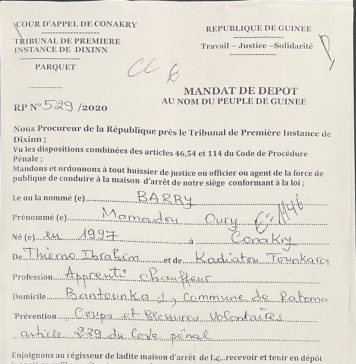 COUR D'APPEL DE CONAKRY
REPUBLIQUE DE GUINEE
TRIBUNAL DE PREMIERE
INSTANCE DE DIXINN
Travail – Justice –Solidarité
PARQUET
CC 6
MANDAT DE DEPOT
AU NOM DU PEUPLE DE GUINEE
RP N° 529 /2020
Nous Procureur de la République près le Tribunal de Première Instance de
Dixinn ;
Vu les dispositions combinées des articles 46,54 et 114 du Code de Procédure
Pénale ;
Mandons et ordonnons à tout huissier de justice ou officier ou agent de la force de
publique de conduire à la maison d'arrêt de notre siège conformant à la loi ;
Le ou la nommé (e) BARRY
Prénommé (e) Mamadou Oury
Né (e) en 1997 à Conakry
De Thierno Ibrahim et de Kadiatou Tounkara
Profession Apprenti chauffeur
Domicile Bantounka 1, Commune de Ratoma
Prévention Coups et Blessures Volontaires
article 239 du Code pénal
Enjoignons au régisseur de ladite maison d'arrêt de l.e recevoir et tenir en dépôt